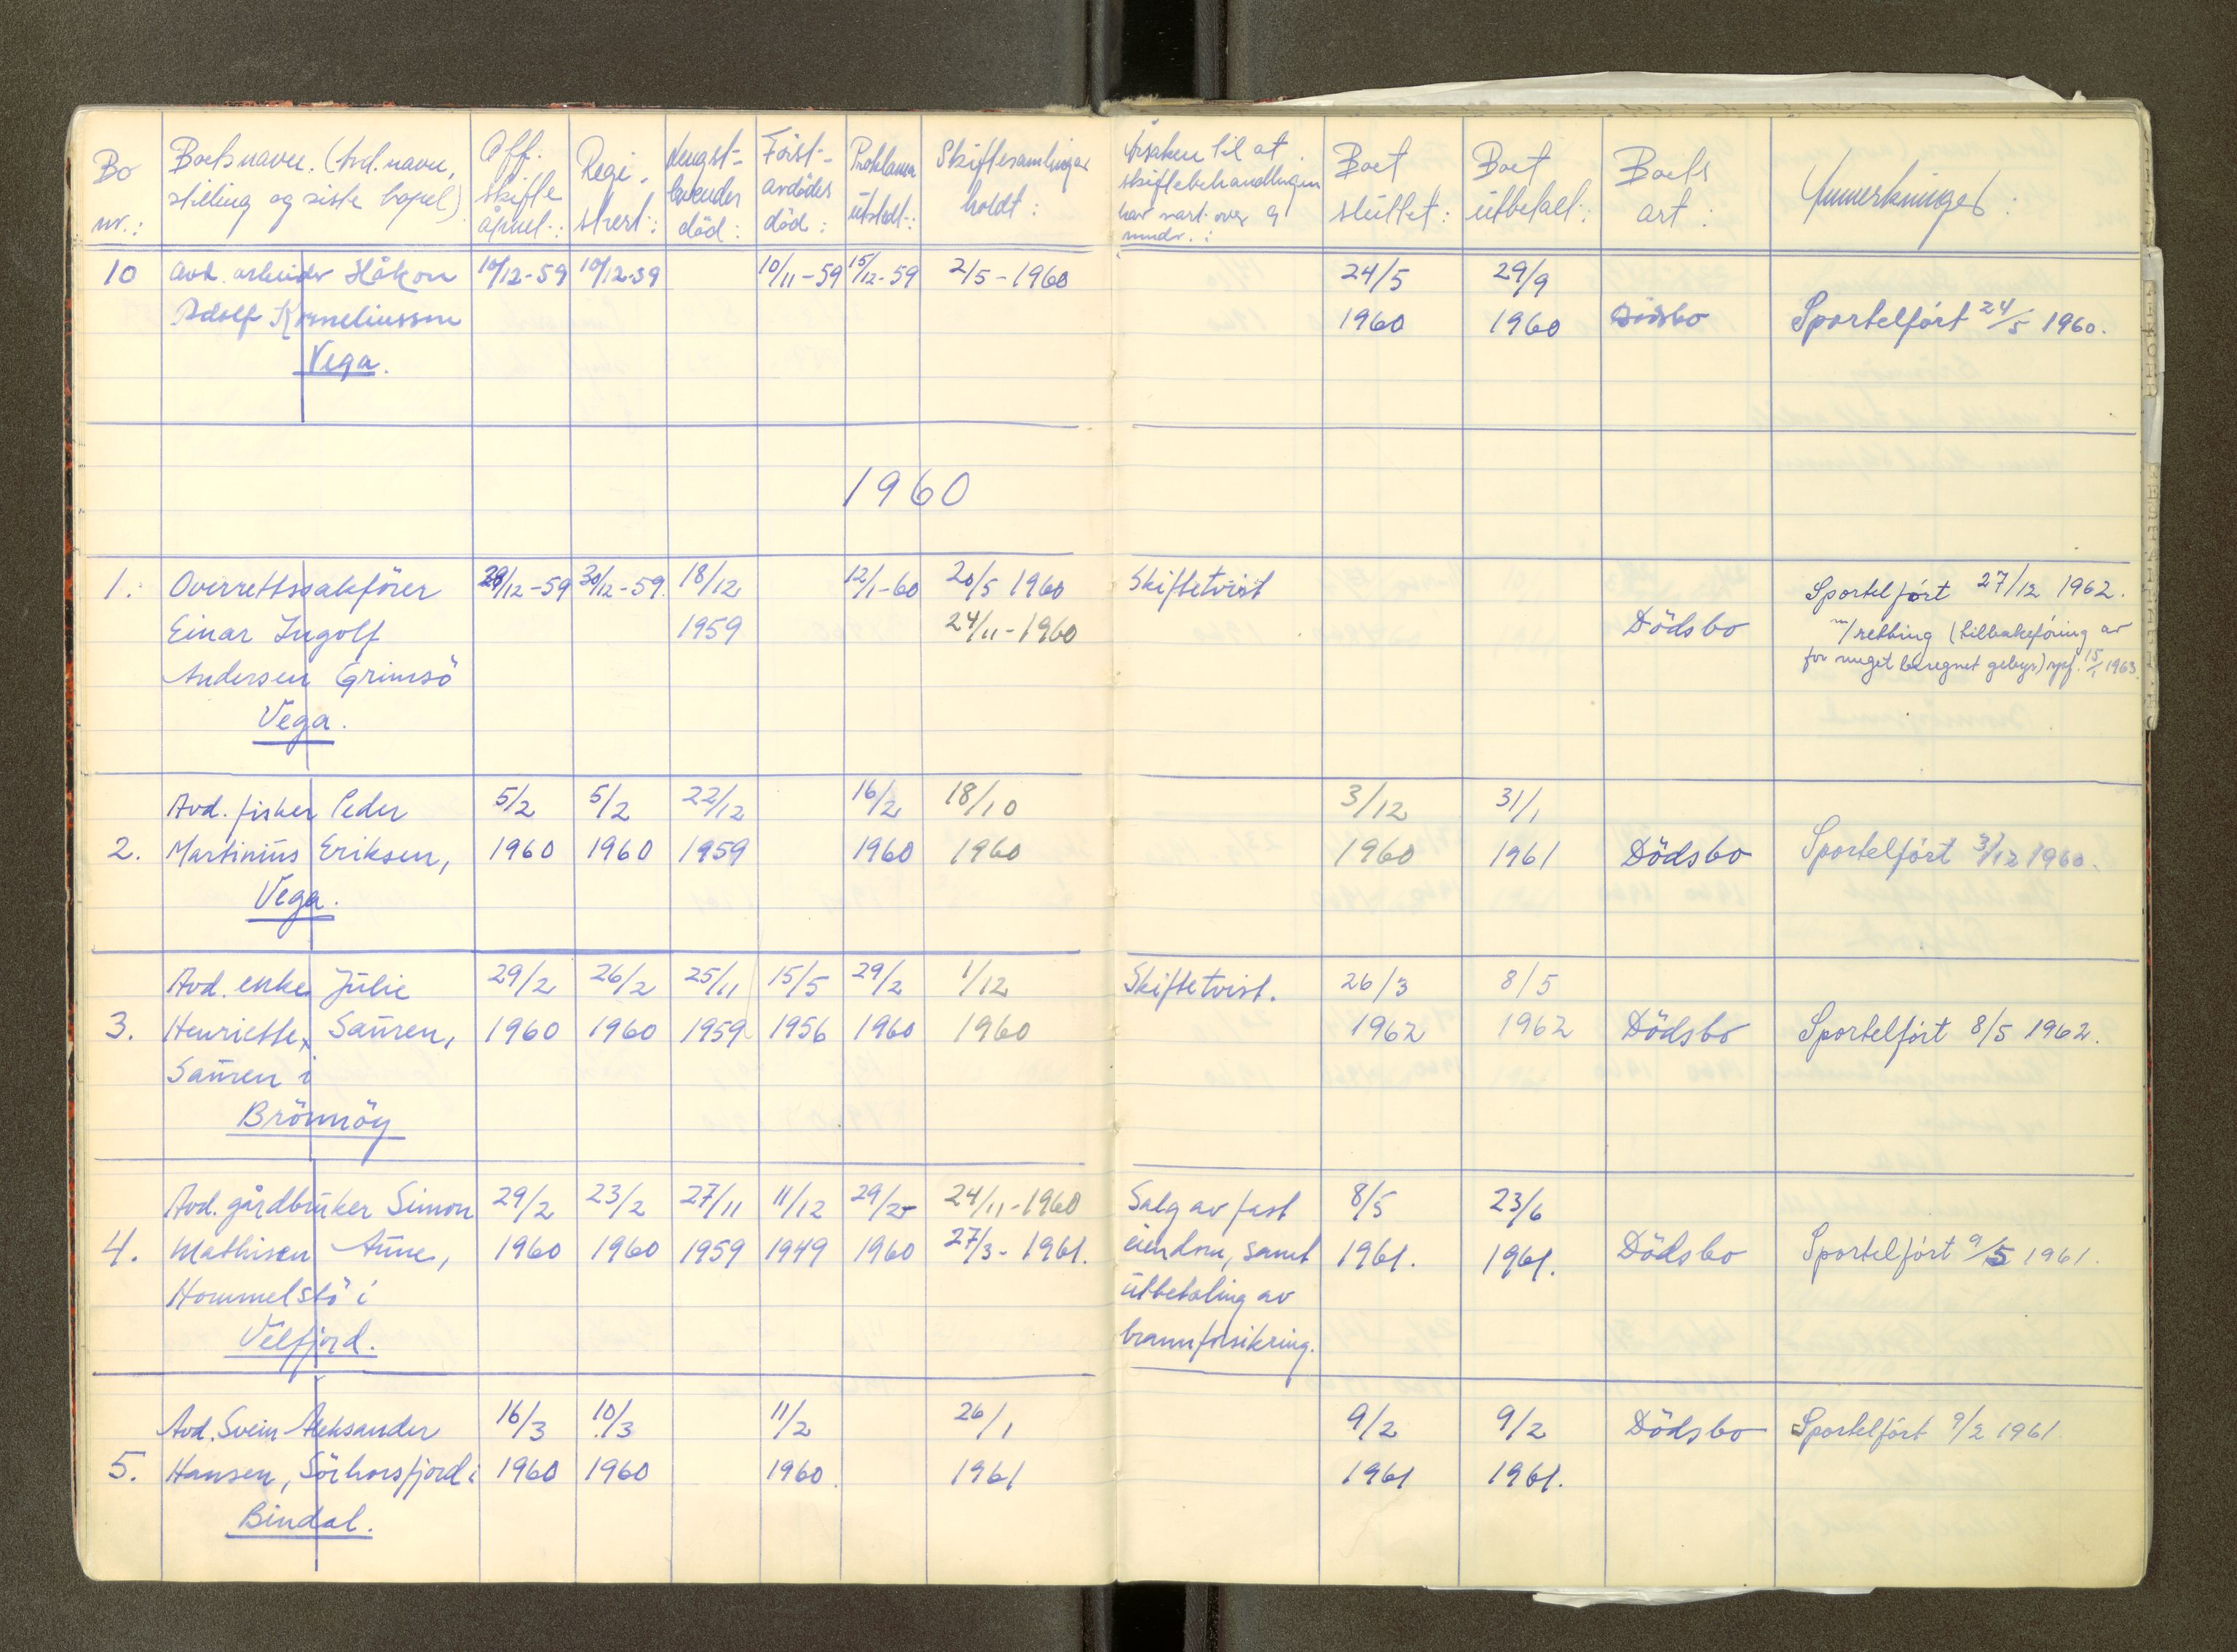 Bo nr.:
Boets navn. (Avd. navn, stilling og siste bopel)
Off. skifte åpnet:
Regi-strert:
Lengst-levendes død:
Först-avdödes död:
Proklama utstedt:
Skiftesamlinger holdt:
Årsaken til at skiftebehandlingen har vart over 9 mndr.:
Boet sluttet:
Boet utbetalt:
Boets art:
Anmerkninger:
10 Avd. arbeider Håkon 10/12-59 10/12-59 10/11-59 15/12-59 2/5-1960 24/5 29/9
Adolf Korneliussen 1960 1960 Dödsbo Sportelført 24/5 1960.
Vega.
1960
1. Overrettssakförer 28/12-59 30/12-59. 18/12 12/1-60 20/5 1960 Skiftetvist Sportelført 27/12 1962.
Einar Ingolf 1959 24/11-1960 Dödsbo m/retting (tilbakeføring av
Andersen Grimsö for meget beregnet gebyr) spf. 15/1 1963.
Vega.
Avd. fisker Peder 5/2 5/2 22/12 16/2 18/10 3/12 31/1
2. Martinius Eriksen, 1960 1960 1959 1960 1960 1960 1961 Dödsbo Sportelført 3/12 1960.
Vega.
Avd. enke Julie 29/2 26/2 25/11 15/5 29/2 1/12 Skiftetvist. 26/3 8/5
3. Henriette Sauren, 1960 1960 1959 1956 1960 1960 1962 1962 Dödsbo Sportelført 8/5 1962.
Sauren i
Brönnöy
Avd. gårdbruker Simon 29/2 23/2 27/11 11/12 29/2 24/11-1960 Salg av fast 8/5 23/6
4. Mathisen Aune, 1960 1960 1959 1949 1960 27/3-1961. eiendom, samt 1961. 1961. Dödsbo Sportelført 9/5 1961.
Hommelstö i utbetaling av
Velfjord. brannforsikring.
Avd. Svein Aleksander 16/3 10/3 11/2 26/1 9/2 9/2 Dödsbo Sportelført 9/2 1961.
5. Hansen, Sörhorsfjord i 1960 1960 1960. 1961 1961 1961.
Bindal.